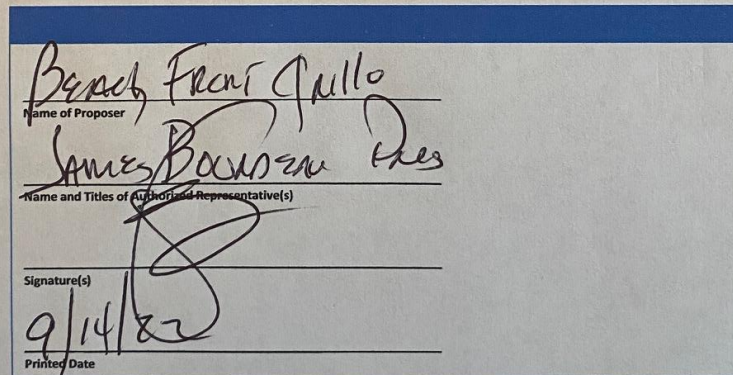 Beach Front Grille
Name of Proposer
James Bourdeau Pres
Name and Titles of Authorized Representative(s)
Signature(s)
9/14/22
Printed Date